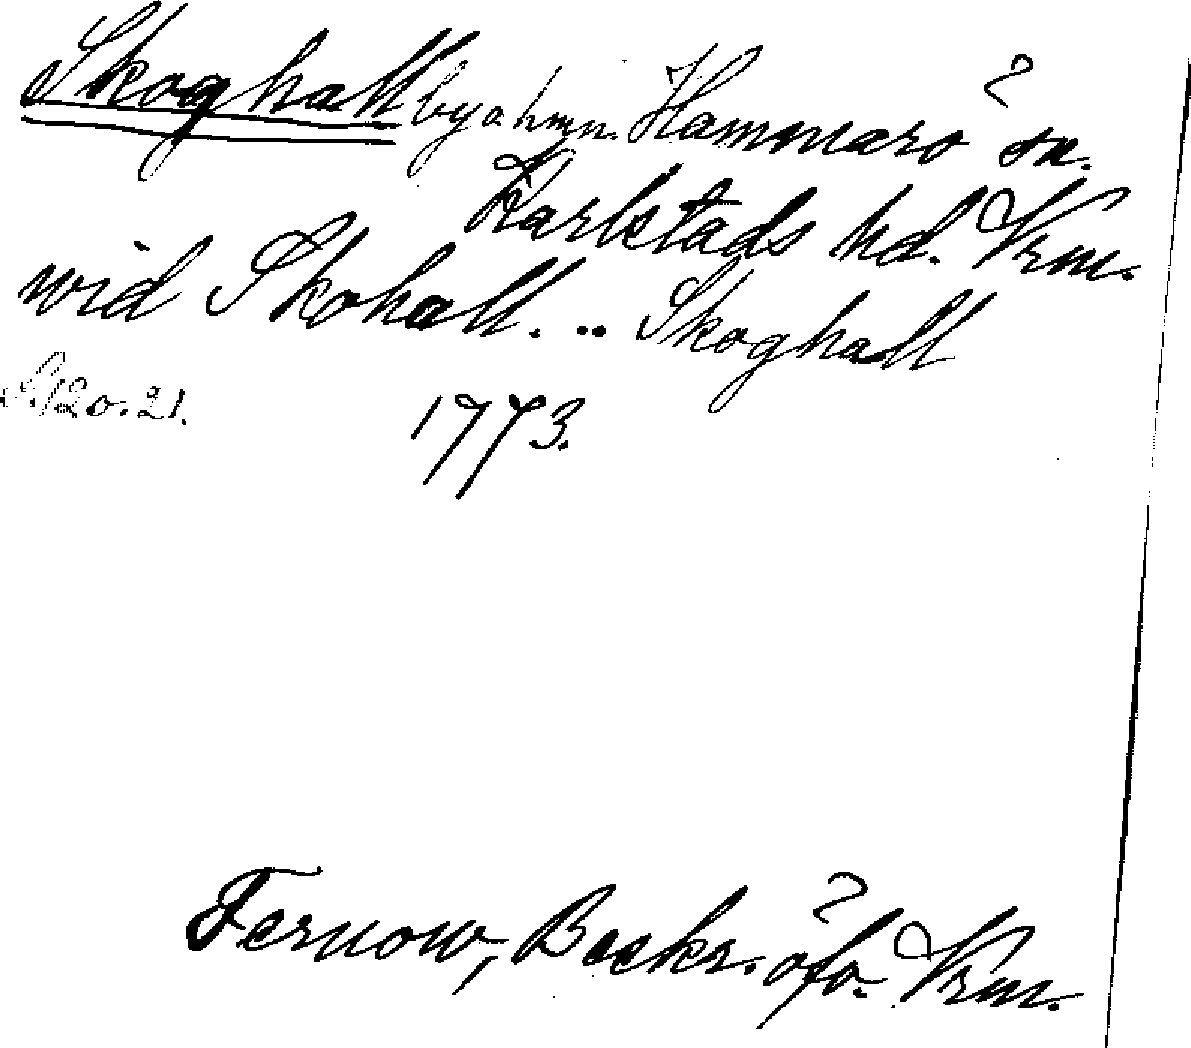 Skoghall by o hmn. Hammarö sn.
Karlstads hd. Vrm.
wid Skohall. .. Skoghall
S. 120. 21.
1773.
Fernow, Beskr. öfv. Vrm.